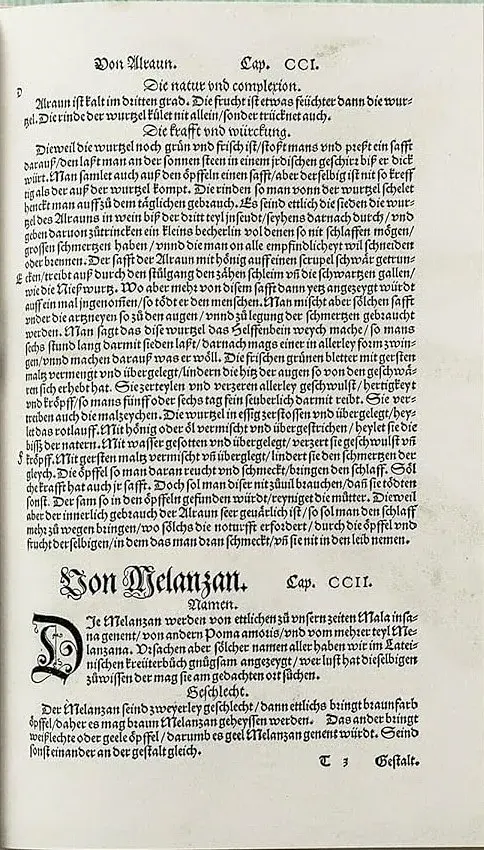 Von Alraun. Cap. CCI.
Die natur vnd complexion.
D
Alraun ist kalt im dritten grad. Die frucht ist etwas feüchter dann die wur-
tzel. Die rinde der wurtzel kület nit allein/ sonder trücknet auch.
Die krafft vnd würckung.
Dieweil die wurtzel noch grün vnd frisch ist/ stoßt mans vnd preßt ein safft
darauß/ den laßt man an der sonnen steen in einem jrdischen geschirr biß er dick
würt. Man samlet auch auß den öpffeln einen safft/ aber derselbig ist nit so kreff
tig als der auß der wurtzel kompt. Die rinden so man vonn der wurtzel schelet
henckt man auff zů dem täglichen gebrauch. Es seind ettlich die sieden die wur-
tzel des Alrauns in wein biß der dritt teyl jnseudt/ seyhens darnach durch/ vnd
geben daruon zůtrincken ein kleins becherlin vol denen so nit schlaffen mögen/
grossen schmertzen haben/ vnnd die man on alle empfindlicheyt wil schneiden
oder brennen. Der safft der Alraun mit hönig auff einen scrupel schwär getrun-
E cken/ treibt auß durch den stůlgang den zähen schleim vñ die schwartzen gallen/
wie die Nießwurtz. Wo aber mehr von disem safft dann yetz angezeygt würdt
auff ein mal jngenom̃en/ so tödt er den menschen. Man mischt aber sölchen safft
vnder die artzneyen so zů den augen/ vnnd zů legung der schmertzen gebraucht
werden. Man sagt das dise wurtzel das Helffenbein weych mache/ so mans
sechs stund lang darmit sieden laßt/ darnach mags einer in allerley form zwin-
gen/ vnnd machen darauß was er wöll. Die frischen grünen bletter mit gersten
maltz vermengt vnd übergelegt/ lindern die hitz der augen so von den geschwä-
ren sich erhebt hat. Sie zerteylen vnd verzeren allerley geschwulst/ hertigkeyt
vnd kröpff/ so mans fünff oder sechs tag fein seuberlich darmit reibt. Sie ver-
treiben auch die malzeychen. Die wurtzel in essig zerstossen vnd übergelegt/ hey-
let das rotlauff. Mit hönig oder öl vermischt vnd übergestrichen/ heylet sie die
bissz der natern. Mit wasser gesotten vnd übergelegt/ verzert sie geschwulst vñ
F kröpff. Mit gersten maltz vermischt vñ überglegt/ lindert sie den schmertzen der
gleych. Die öpffel so man daran reucht vnd schmeckt/ bringen den schlaff. Söl
che krafft hat auch jr safft. Doch sol man diser nit zůuil brauchen/ dañ sie tödten
sonst. Der sam so in den öpffeln gefunden würdt/ reyniget die můtter. Dieweil
aber der innerlich gebrauch der Alraun seer geuärlich ist/ so sol man den schlaff
mehr zů wegen bringen/ wo sölchs die noturfft erfordert/ durch die öpffel vnd
frucht derselbigen/ in dem das man dran schmeckt/ vñ sie nit in den leib nemen.
Von Melanzan. Cap. CCII.
Namen.
DIe Melanzan werden von ettlichen zů vnsern zeiten Mala insa-
na genent/ von andern Poma amoris/ vnd vom mehrer teyl Me-
lanzana. Vrsachen aber sölcher namen aller haben wir im Latei-
nischen kreüterbůch gnůgsam angezeygt/ wer lust hat dieselbigen
zůwissen der mag sie am gedachten ort sůchen.
Geschlecht.
Der Melanzan seind zweyerley geschlecht/ dann ettlichs bringt braunfarb
öpffel/ daher es mag braun Melanzan geheyssen werden. Das ander bringt
weißlechte oder geele öpffel/ darumb es geel Melanzan genent würdt. Seind
sonst einander an der gestalt gleich.
T 3 Gestalt.